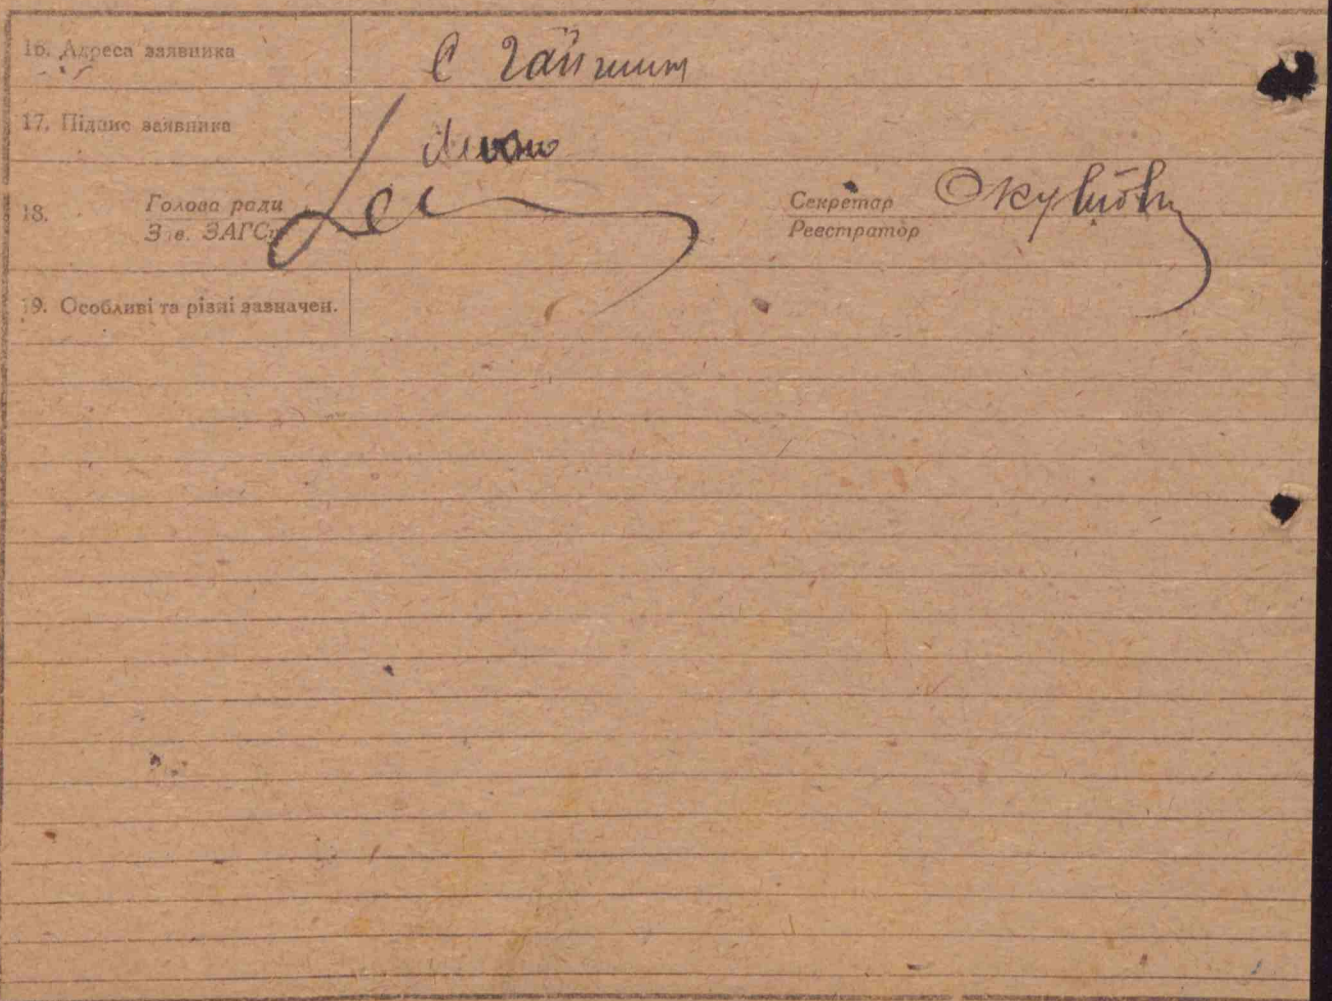 16. Адреса заявника
с Гайшин
17. Підпис заявника
18. Голова ради
Зав. ЗАГСу
Секретар
Реєстратор
19. Особливі та різні зазначен.